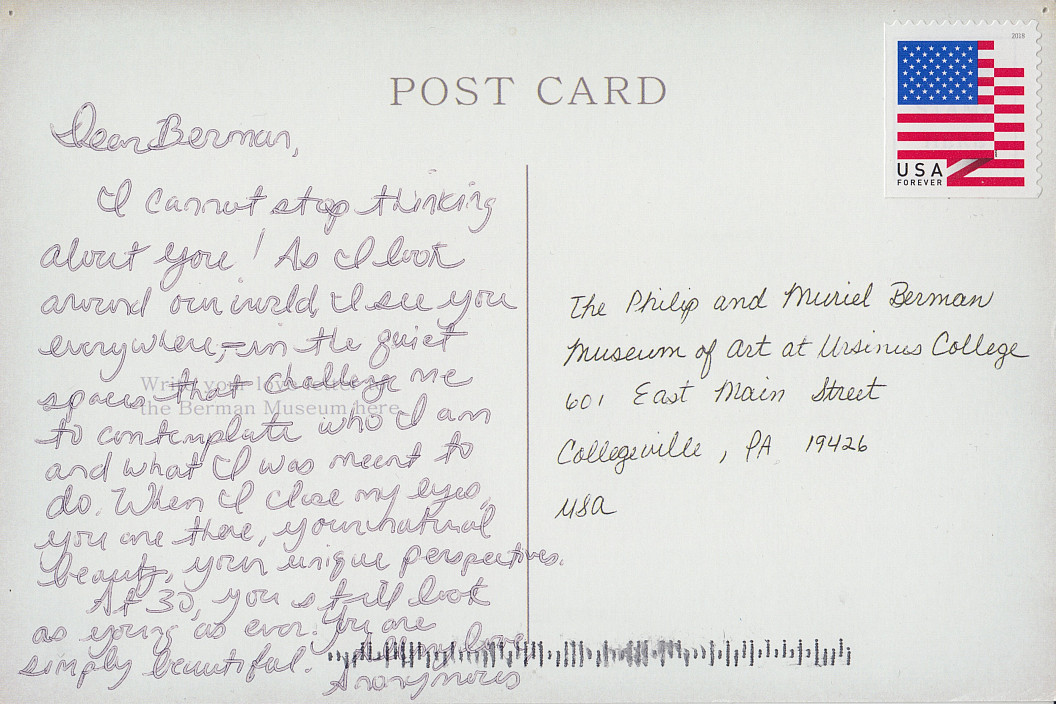 POST CARD
2018
USA
FOREVER
Dear Berman,
I cannot stop thinking
about you! As I look
around our world, I see you
everywhere, – in the quiet
spaces that challenge me
to contemplate who I am
and what I was meant to
do. When I close my eyes,
you are there, your natural
beauty, your unique perspectives.
At 30, you still look
as young as ever. You are
simply beautiful.
All my love,
Anonymous
Write your love
the Berman Museum here
The Philip and Muriel Berman
Museum of Art at Ursinus College
601 East Main Street
Collegeville, PA 19426
USA